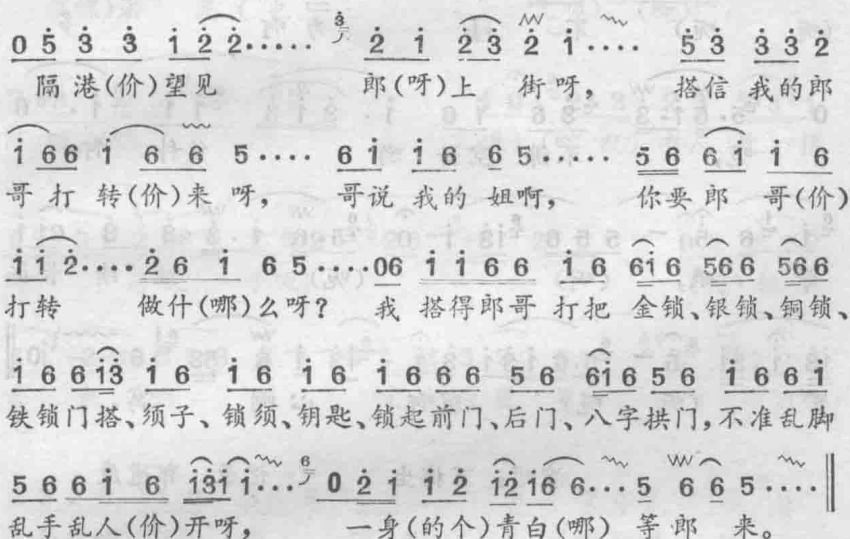 0 5 3 3 1 2 2····· 3 2 1 2 3 2 1···· 5 3 3 3 2
隔港(价)望见 郎(呀)上 街呀, 搭信 我的郎
1 6 6 1 6 6 5···· 6 1 1 6 6 5····· 5 6 6 1 1 6
哥打 转(价)来 呀, 哥说 我的 姐啊, 你要 郎 哥(价)
1 1 2···· 2 6 1 6 5····0 6 1 1 6 6 1 6 6 1 6 5 6 6 5 6 6
打转 做什(哪)么呀? 我 搭得郎哥 打把 金锁、银锁、铜锁、
1 6 6 1 3 1 6 1 6 1 6 1 6 6 6 5 6 6 1 6 5 6 1 6 6 1
铁锁门搭、须子、锁须、钥匙、锁起前门、后门、八字拱门,不准乱脚
5 6 6 1 6 1 3 1 1···· 6 0 2 1 1 2 1 2 1 6 6··· 5 6 6 5····
乱手乱人(价)开呀, 一身(的个)青白(哪) 等郎 来。